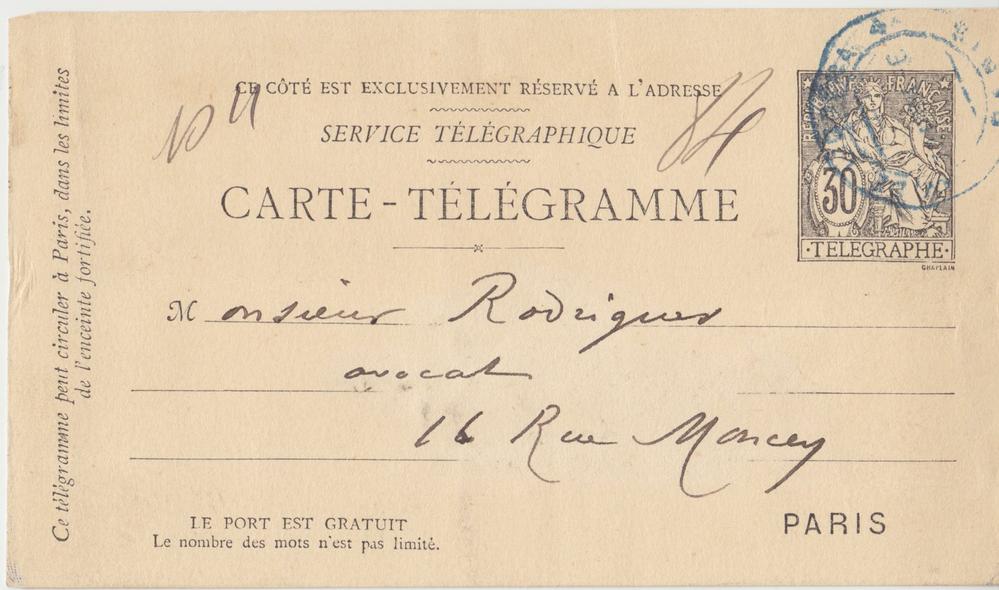 CE CÔTÉ EST EXCLUSIVEMENT RÉSERVÉ A L'ADRESSE
SERVICE TÉLÉGRAPHIQUE
CARTE-TÉLÉGRAMME
REPUBLIQUE FRANÇAISE
30
·TELEGRAPHE·
CHAPLAIN
Monsieur Rodrigues
avocat
16 Rue Moncey
PARIS
LE PORT EST GRATUIT
Le nombre des mots n'est pas limité.
Ce télégramme peut circuler à Paris, dans les limites
de l'enceinte fortifiée.